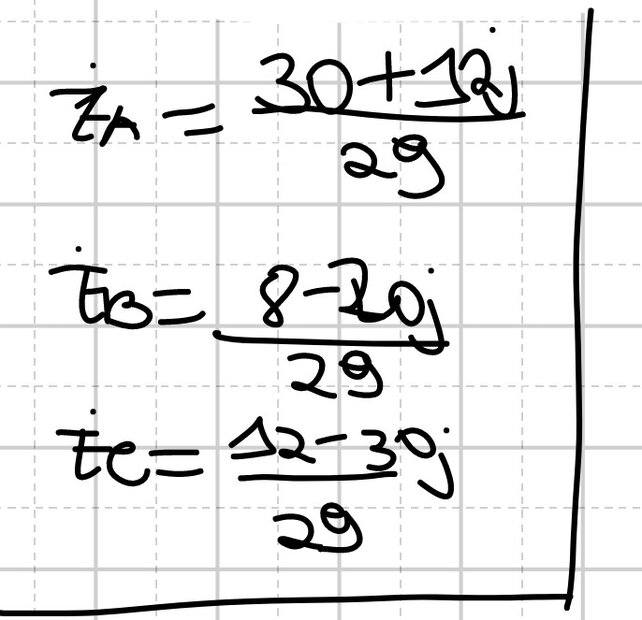 Ż_A = (30+12j)/29
Ż_B = (8-20j)/29
Ż_C = (12-30j)/29